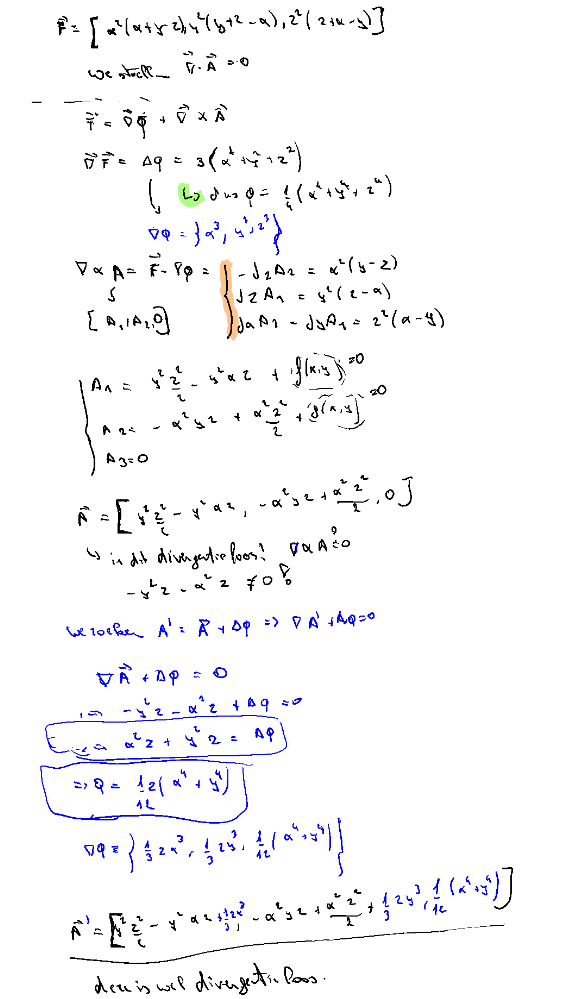 F⃗ = [x²(x+y-z), y²(y+z-x), z²(z+x-y)]
we stell ∇⃗·A⃗ = 0
F⃗ = ∇⃗φ + ∇⃗ × A⃗
∇⃗F⃗ = Δφ = 3(x²+y²+z²)
↳ dus φ = 1/4 (x⁴+y⁴+z⁴)
∇φ = {x³, y³, z³}
∇×A = F⃗-∇φ = { -∂zA2 = x²(y-z)
∂zA1 = y²(z-x)
[A1, A2, 0] ∂xA2 - ∂yA1 = z²(x-y)
A1 = y²z²/2 - y²xz + f(x,y) =0
A2 = -x²yz + x²z²/2 + g(x,y) =0
A3=0
A⃗ = [y²z²/2 - y²xz, -x²yz + x²z²/2, 0]
↳ is dit divergentieloos? ∇×A ?= 0
-y²z - x²z ≠ 0!
we zoeken A' = A⃗ + Δφ => ∇A' + Δφ=0
∇A⃗ + Δφ = 0
-y²z - x²z + Δφ = 0
x²z + y²z = Δφ
=> φ = 1/12 z(x⁴+y⁴)
∇φ = {1/3 zx³, 1/3 zy³, 1/12 (x⁴+y⁴)}
A⃗' = [y²z²/2 - y²xz + 1/3 zx³, -x²yz + x²z²/2 + 1/3 zy³, 1/12 (x⁴+y⁴)]
deze is wel divergentieloos.